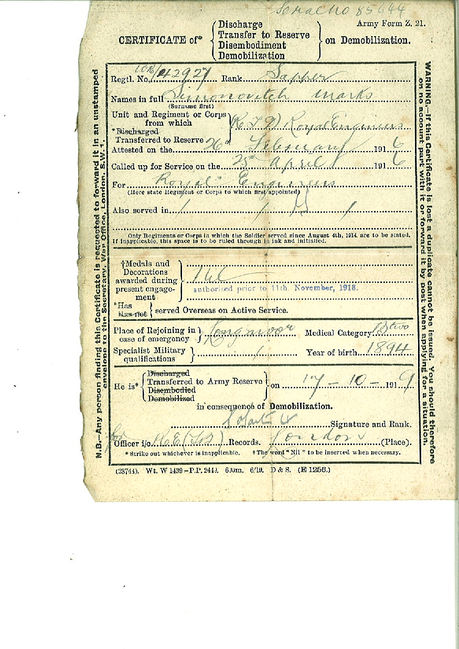 Serial No 85644
Army Form Z. 21.
CERTIFICATE of* { Discharge
Transfer to Reserve
Disembodiment
Demobilization } on Demobilization.
Regtl. No. 212927 Rank Sapper
Names in full Simonovitch Marks
(Surname first)
Unit and Regiment or Corps from which Royal Engineers
*Discharged
Transferred to Reserve
Attested on the 26th February 1916
Called up for Service on the 25th April 1916
For Royal Engineers
(Here state Regiment or Corps to which first appointed)
Also served in
Only Regiments or Corps in which the Soldier served since August 4th, 1914, are to be stated.
If inapplicable, this space is to be ruled through in ink and initialled.
†Medals and
Decorations
awarded during
present engage-
ment
authorised prior to 11th November, 1918.
*Has
Has not } served Overseas on Active Service.
Place of Rejoining in
case of emergency } Medical Category
Specialist Military
qualifications } Year of birth 1894
He is* { Discharged
Transferred to Army Reserve
Disembodied
Demobilized } on 17-10-1919
in consequence of Demobilization.
Signature and Rank.
Officer i/c Records. London (Place).
* Strike out whichever is inapplicable. † The word "Nil" to be inserted when necessary.
(28744). Wt. W 1439-P.P. 2444. 6/19. D & S. (E 1256.)
N.B.-Any person finding this Certificate is requested to forward it in an unstamped
envelope to the Secretary, War Office, London, S.W. 1.
WARNING.-If this Certificate is lost a duplicate cannot be issued. You should therefore
on no account part with it or forward it by post when applying for a situation.